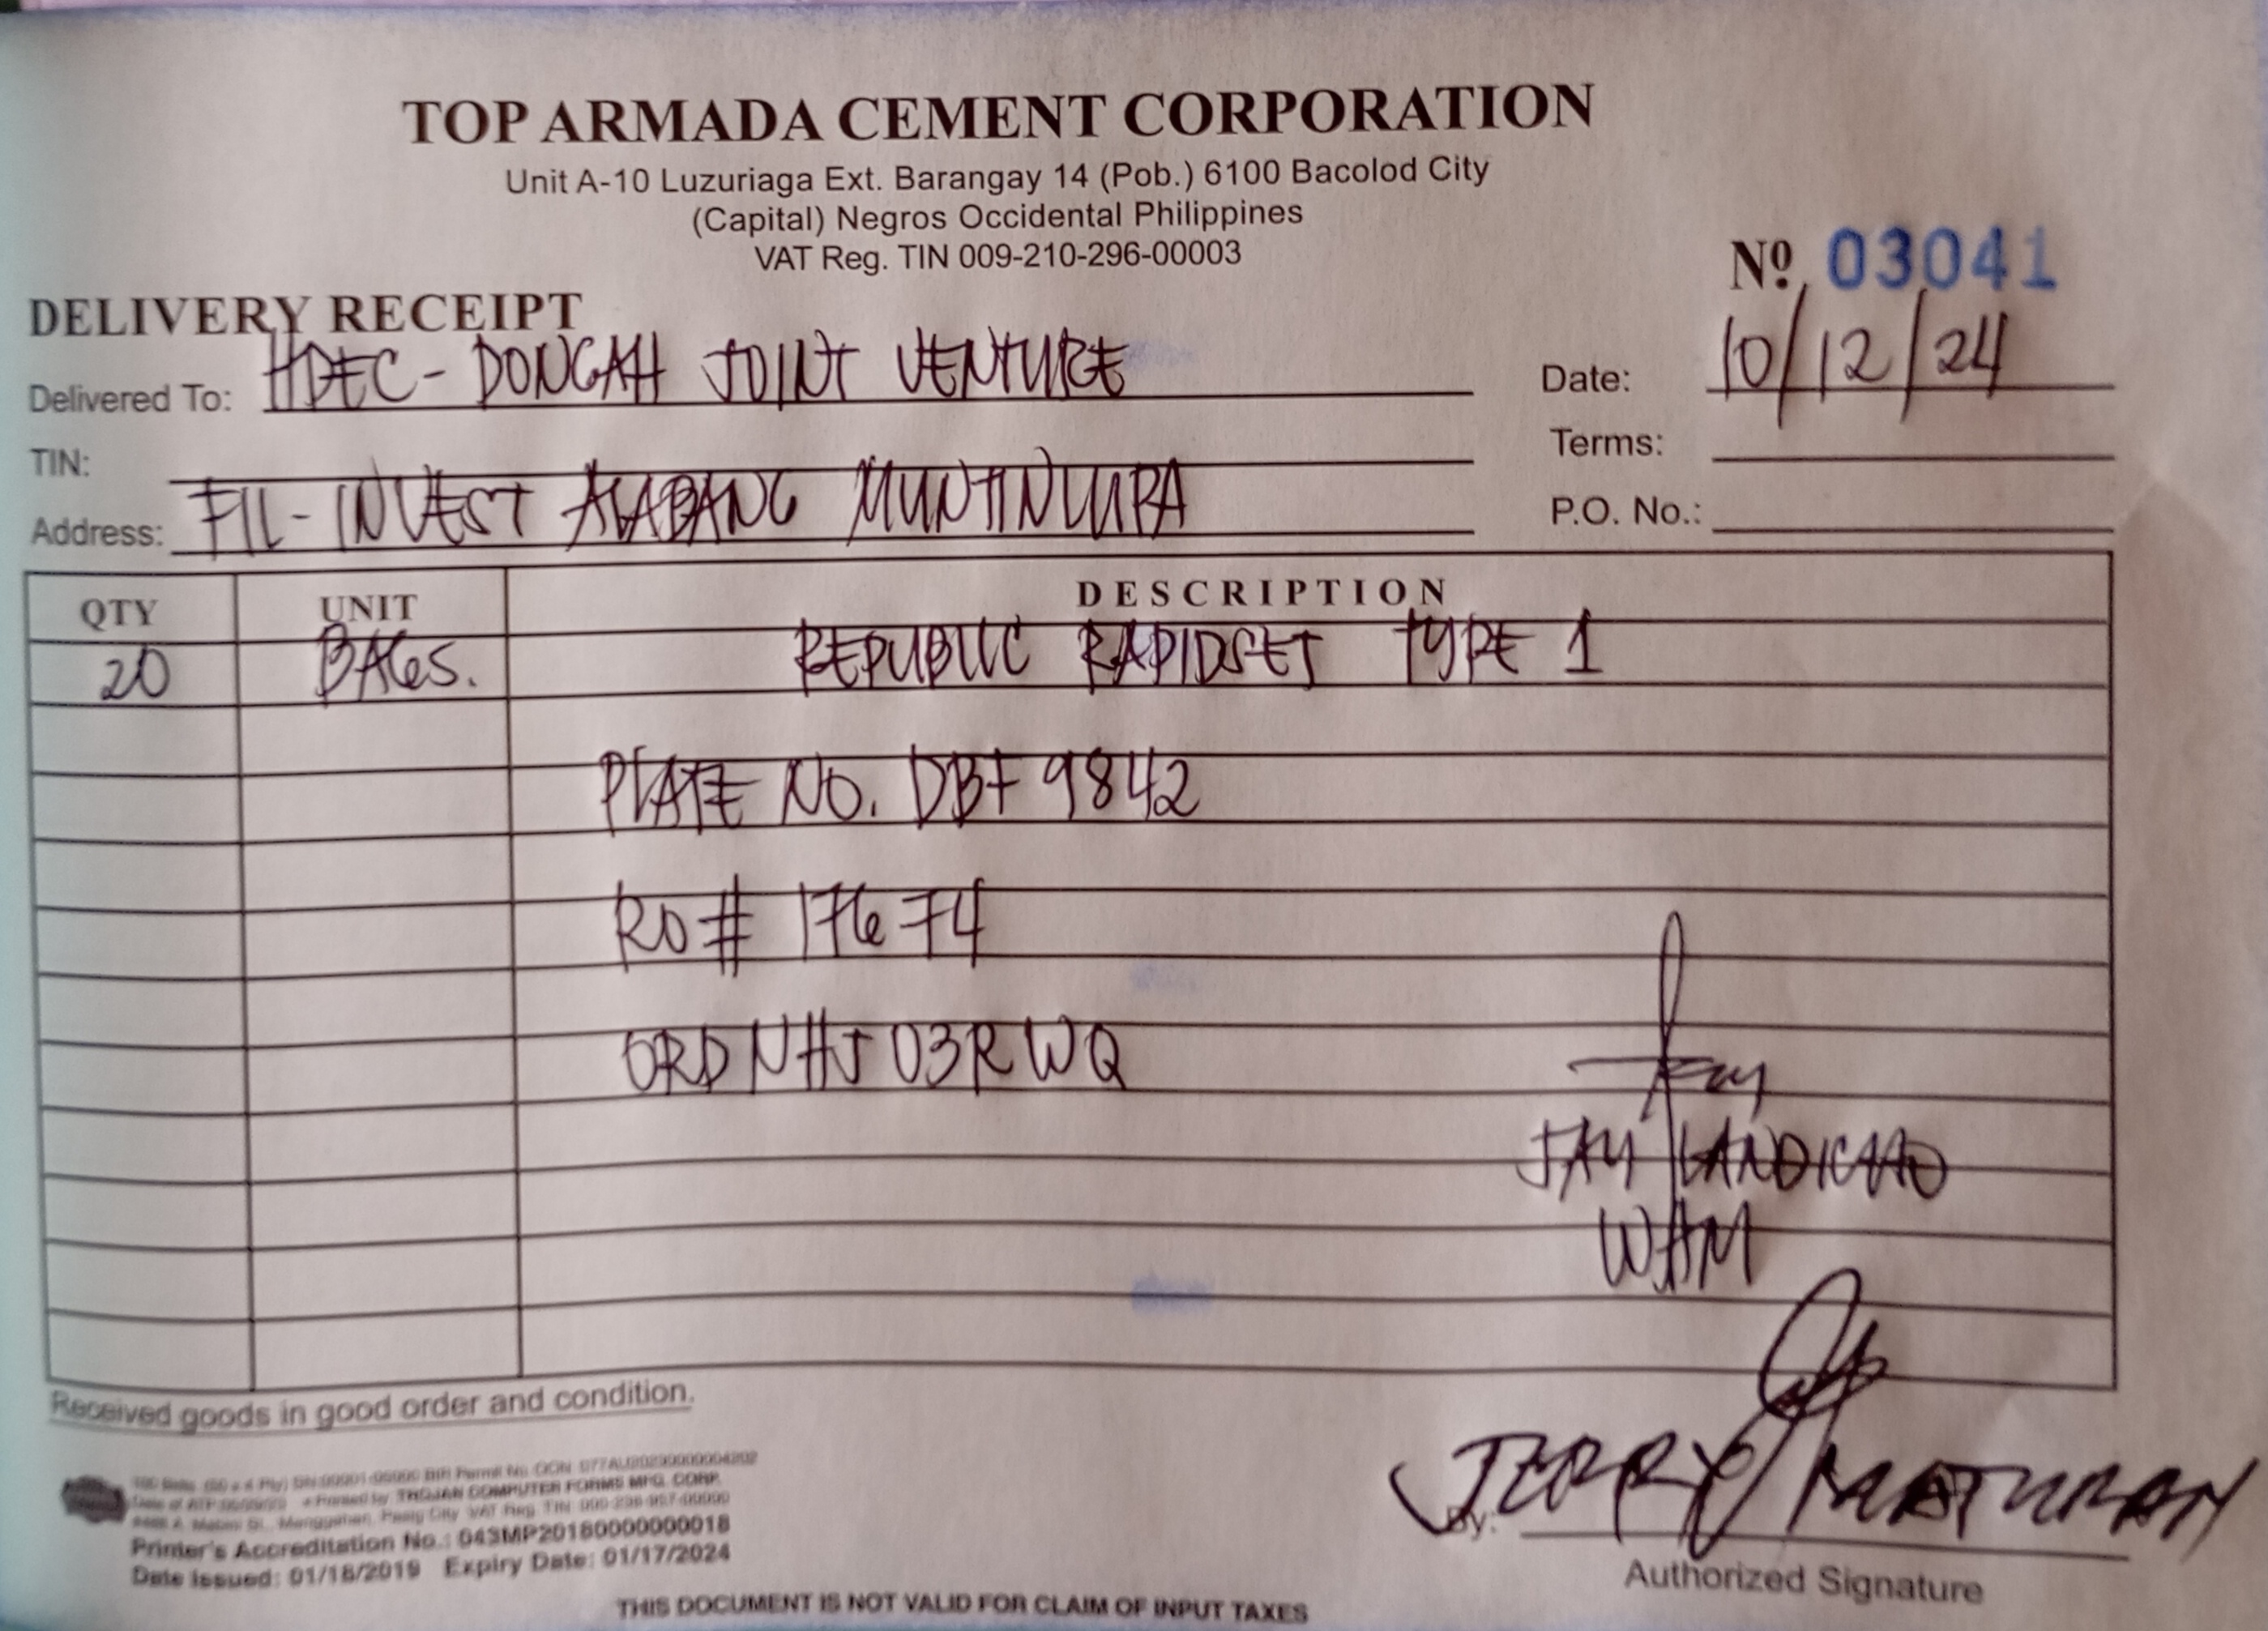 TOP ARMADA CEMENT CORPORATION
Unit A-10 Luzuriaga Ext. Barangay 14 (Pob.) 6100 Bacolod City
(Capital) Negros Occidental Philippines
VAT Reg. TIN 009-210-296-00003
Nº 03041
DELIVERY RECEIPT
Delivered To: HDEC - DONGAH JOINT VENTURE
Date: 10/12/24
TIN:
Terms:
Address: FIL-INVEST ALABANG MUNTINLUPA
P.O. No.:
QTY UNIT DESCRIPTION
20 BAGS. REPUBLIC RAPIDSET TYPE 1
PLATE NO. DBF 9842
RO# 17674
ORDNHJ03RWQ
Jay
JAY LANDICHO
WAM
Received goods in good order and condition.
JERRY MATURAN
By:
Authorized Signature
Printed by: TROJAN COMPUTER FORMS MFG. CORP.
Printer's Accreditation No.: 043MP20180000000018
Date Issued: 01/18/2019 Expiry Date: 01/17/2024
THIS DOCUMENT IS NOT VALID FOR CLAIM OF INPUT TAXES